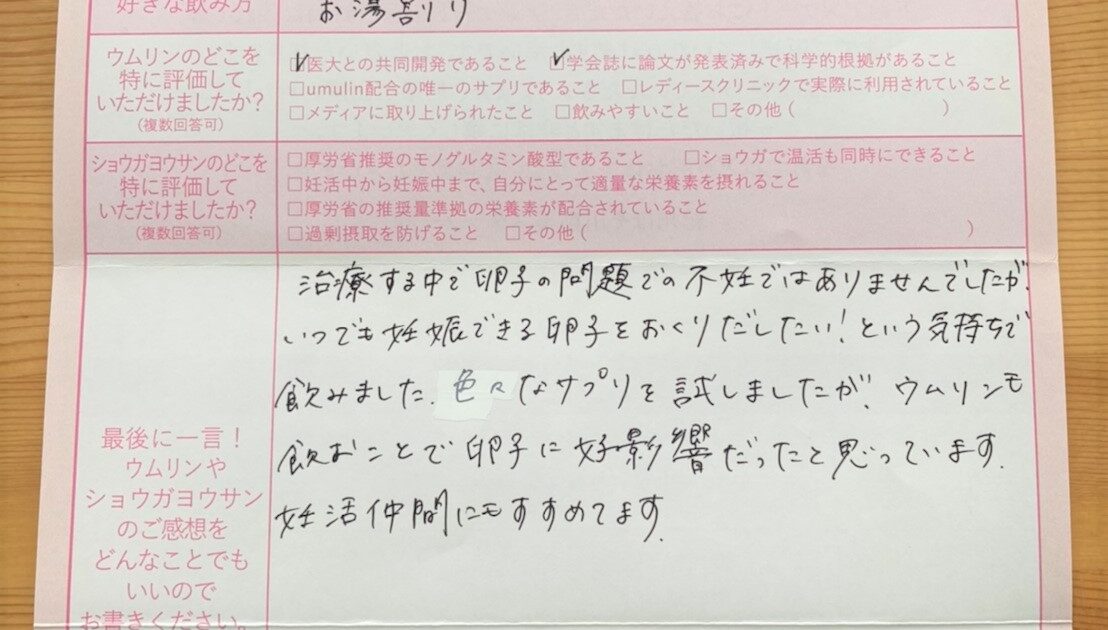 好きな飲み方
お湯割り
ウムリンのどこを
特に評価して
いただけましたか?
(複数回答可)
☑医大との共同開発であること ☑学会誌に論文が発表済みで科学的根拠があること
□umulin配合の唯一のサプリであること □レディースクリニックで実際に利用されていること
□メディアに取り上げられたこと □飲みやすいこと □その他( )
ショウガヨウサンのどこを
特に評価して
いただけましたか?
(複数回答可)
□厚労省推奨のモノグルタミン酸型であること □ショウガで温活も同時にできること
□妊活中から妊娠中まで、自分にとって適量な栄養素を摂れること
□厚労省の推奨量準拠の栄養素が配合されていること
□過剰摂取を防げること □その他( )
最後に一言!
ウムリンや
ショウガヨウサン
のご感想を
どんなことでも
いいので
お書きください。
治療する中で卵子の問題での不妊ではありませんでしたが、
いつでも妊娠できる卵子をおくりだしたい!という気持ちで
飲みました。色々なサプリを試しましたが、ウムリンも
飲むことで卵子に好影響だったと思っています。
妊活仲間にもすすめてます。